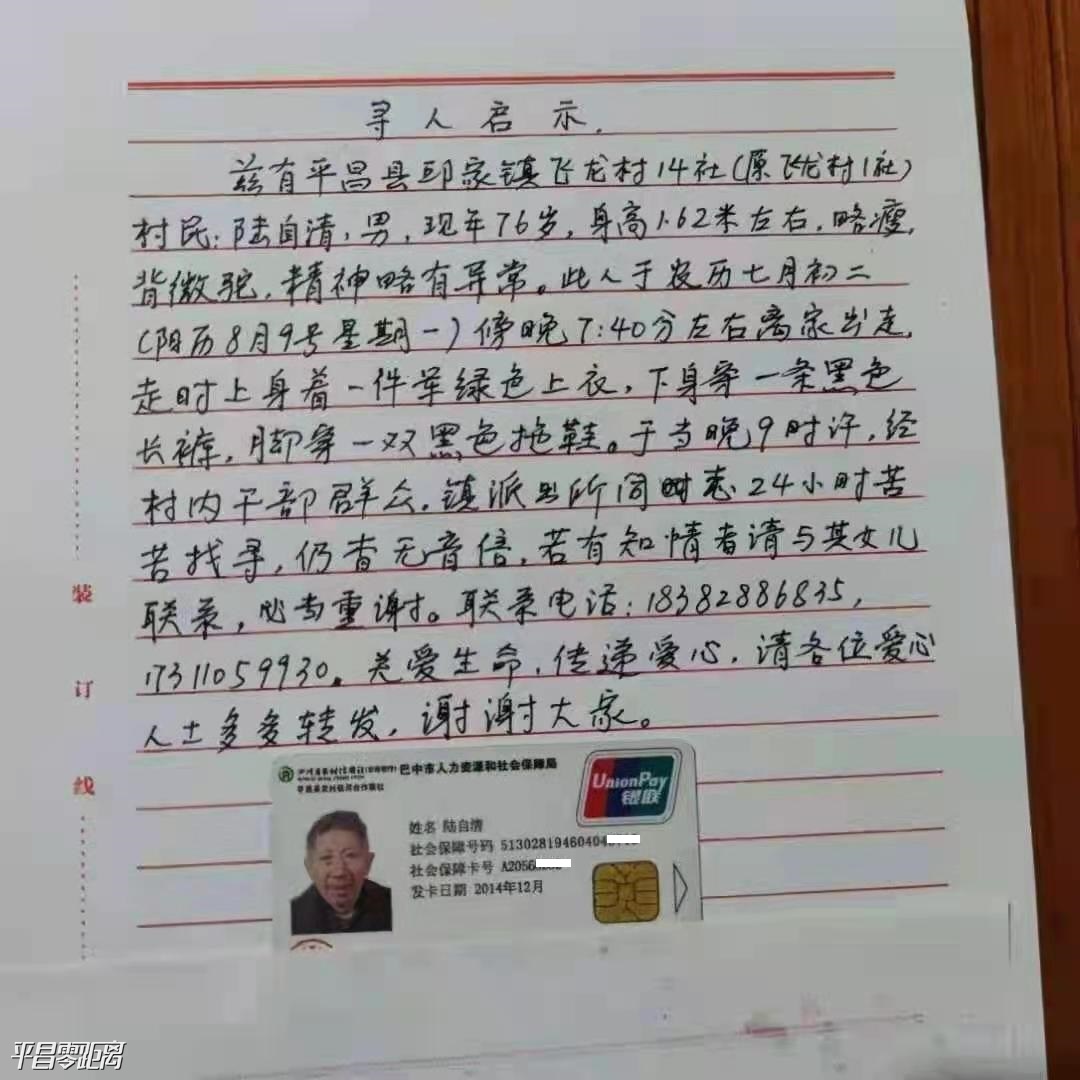 寻人启示.
兹有平昌县邱家镇飞龙村14社(原飞龙村1社)
村民:陆自清,男,现年76岁,身高1.62米左右,略瘦,
背微驼,精神略有异常。此人于农历七月初二
(阳历8月9号星期一)傍晚7:40分左右离家出走,
走时上身着一件军绿色上衣,下身穿一条黑色
长裤,脚穿一双黑色拖鞋。于当晚9时许,经
村内干部群众,镇派出所同志24小时苦
苦找寻,仍杳无音信,若有知情者请与其女儿
联系,必当重谢。联系电话:18382886835,
17311059930。关爱生命,传递爱心,请各位爱心
人士多多转发,谢谢大家。
装
订
线
巴中市人力资源和社会保障局
平昌县农村信用合作联社
UnionPay
银联
姓名 陆自清
社会保障号码 51302819460404
社会保障卡号 A20560
发卡日期 2014年12月
平昌零距离